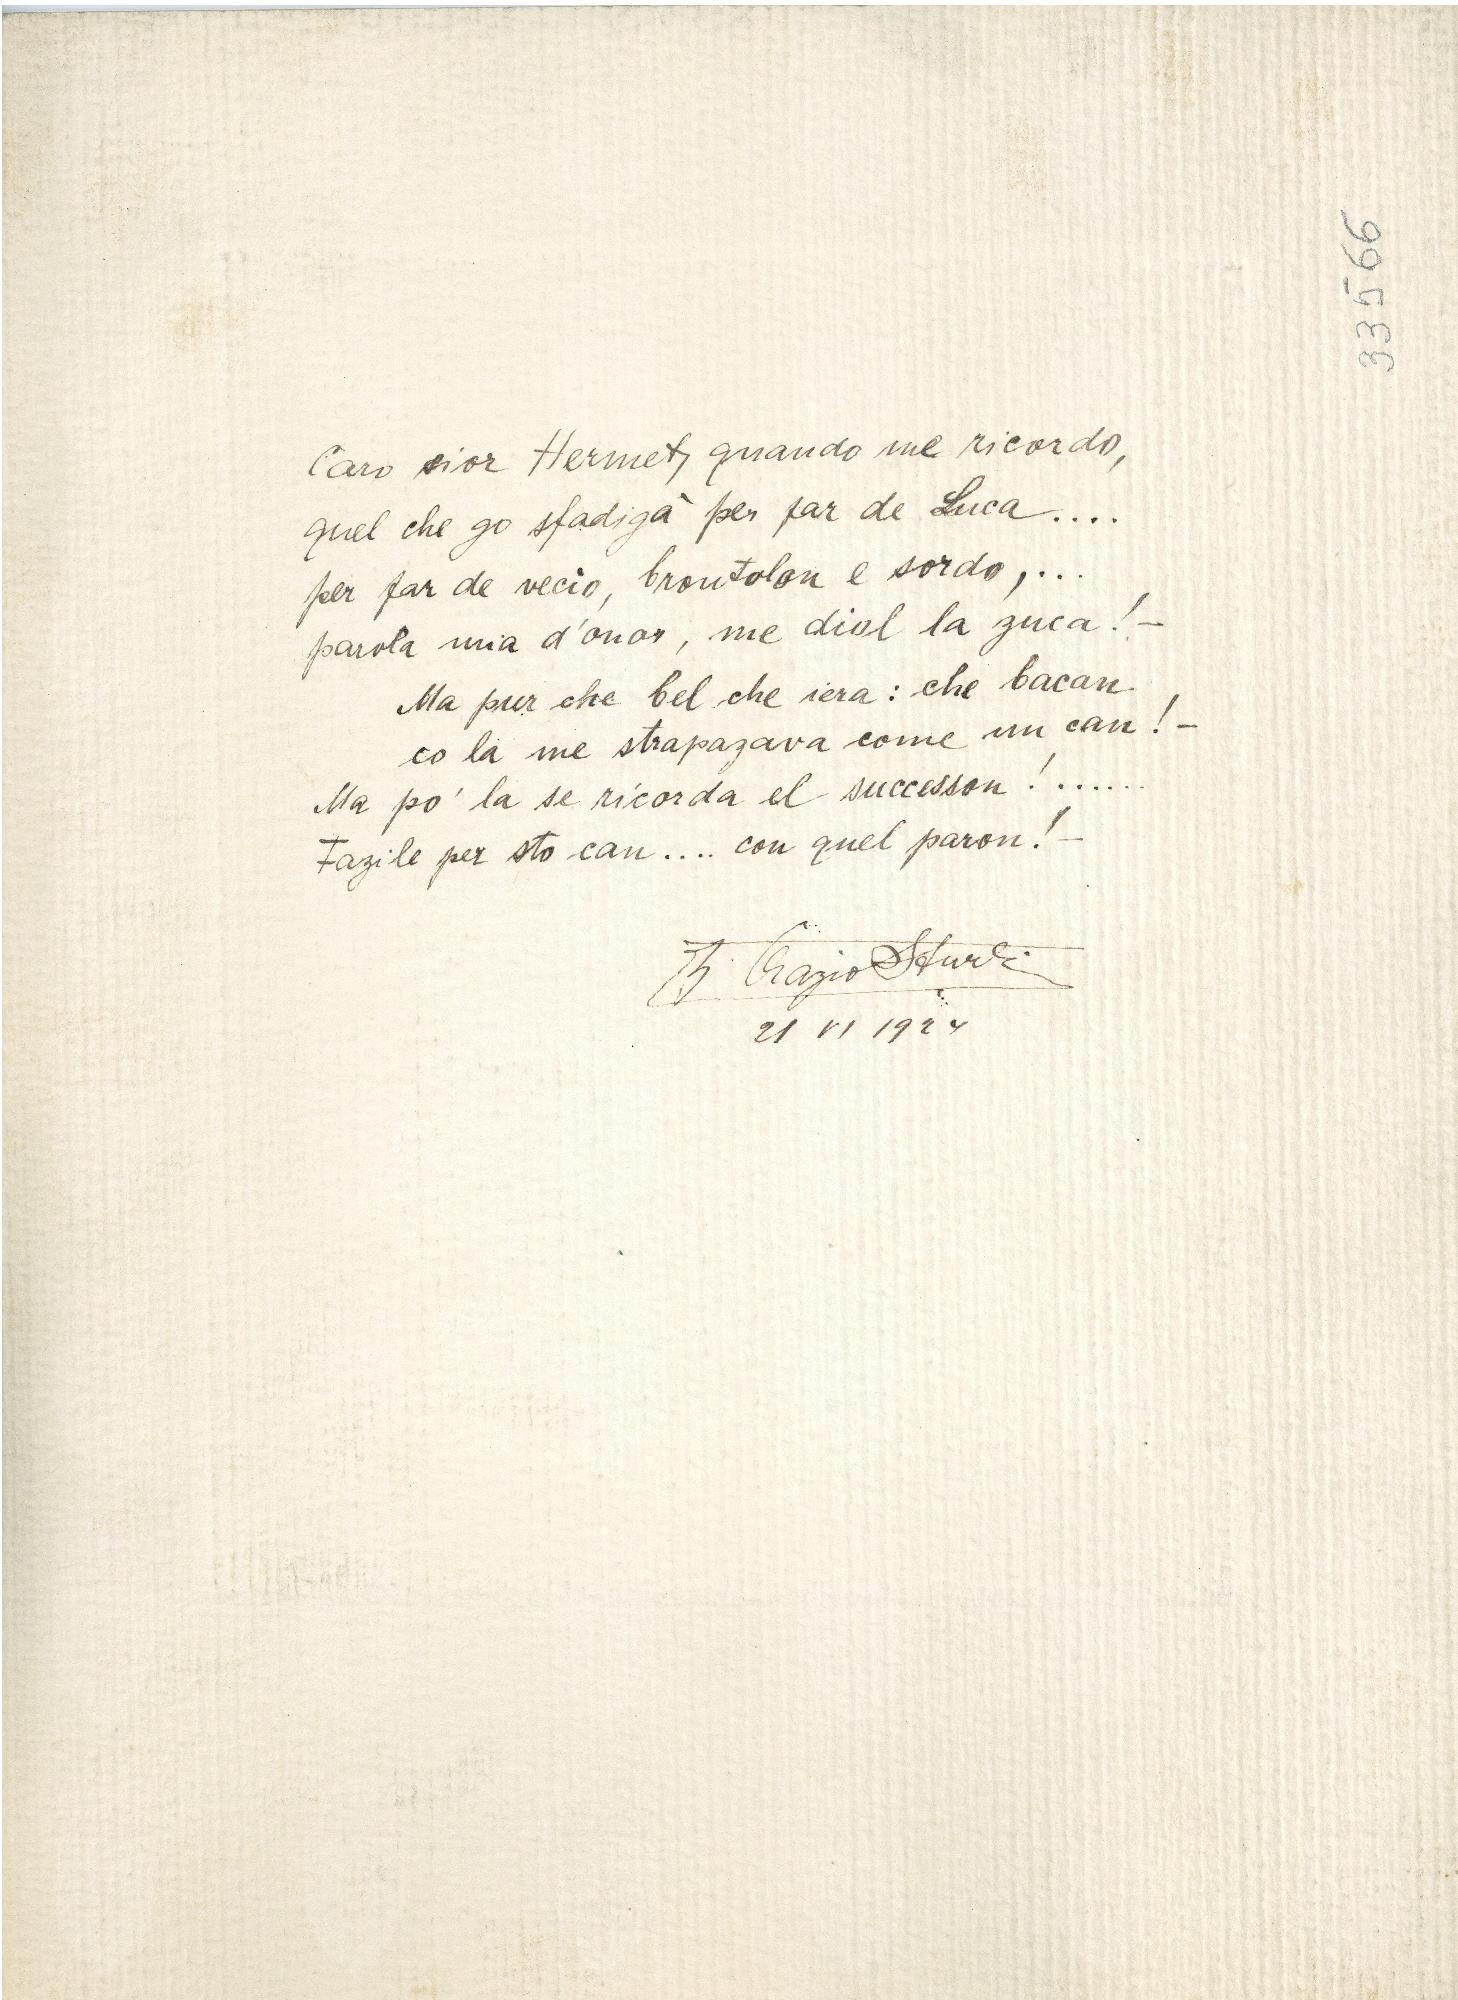 Caro sior Hermet, quando me ricordo,
quel che go sfadigà per far de Luca....
per far de vecio, brontolon e sordo,...
parola mia d'onor, me diol la zuca!-
Ma pur che bel che iera: che bacan
co la me strapazava come un can!-
Ma po' la se ricorda el successon!......
Fazile per sto can.... con quel paron!-
Orazio
21 VI 1924
33566